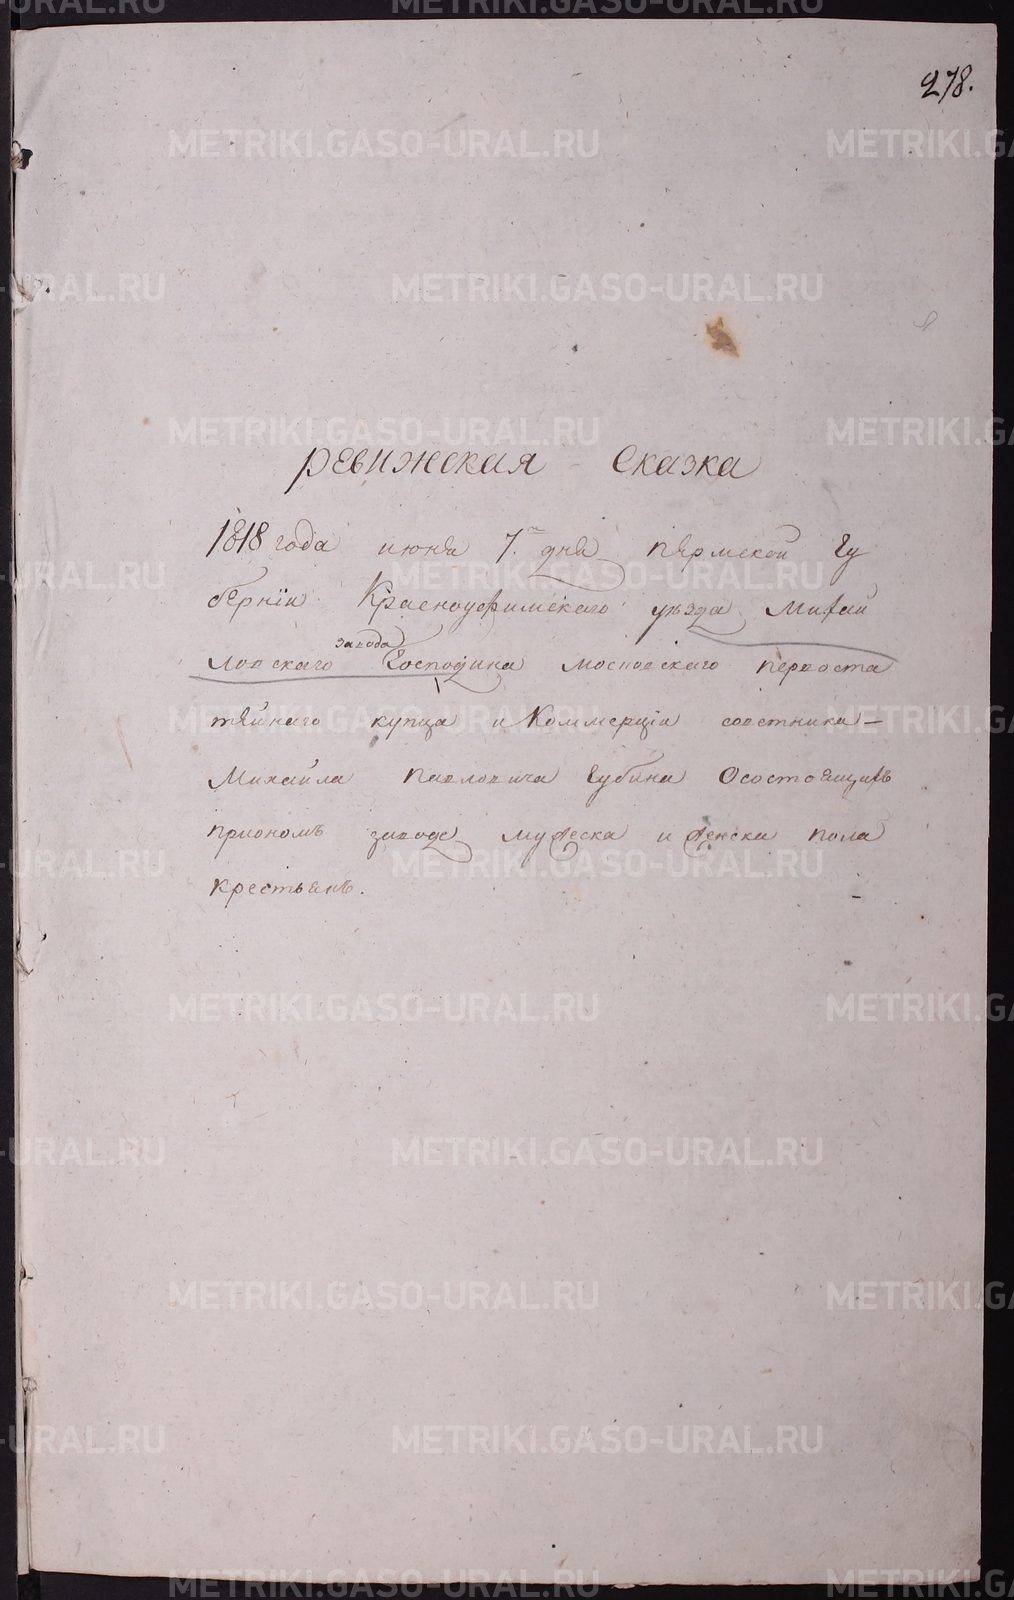 278.
ревижская сказка
1818 года июня 7. дня пермской гу
бернїи Красноуфимскаго уезда Михаи
ловскаго завода Господина московскаго первоста
тейнаго купца и Коммерціи советника –
Михаила павловича губина Осостоящихъ
приономъ заводе мужеска и женска пола
крестьянъ.
METRIKI.GASO-URAL.RU